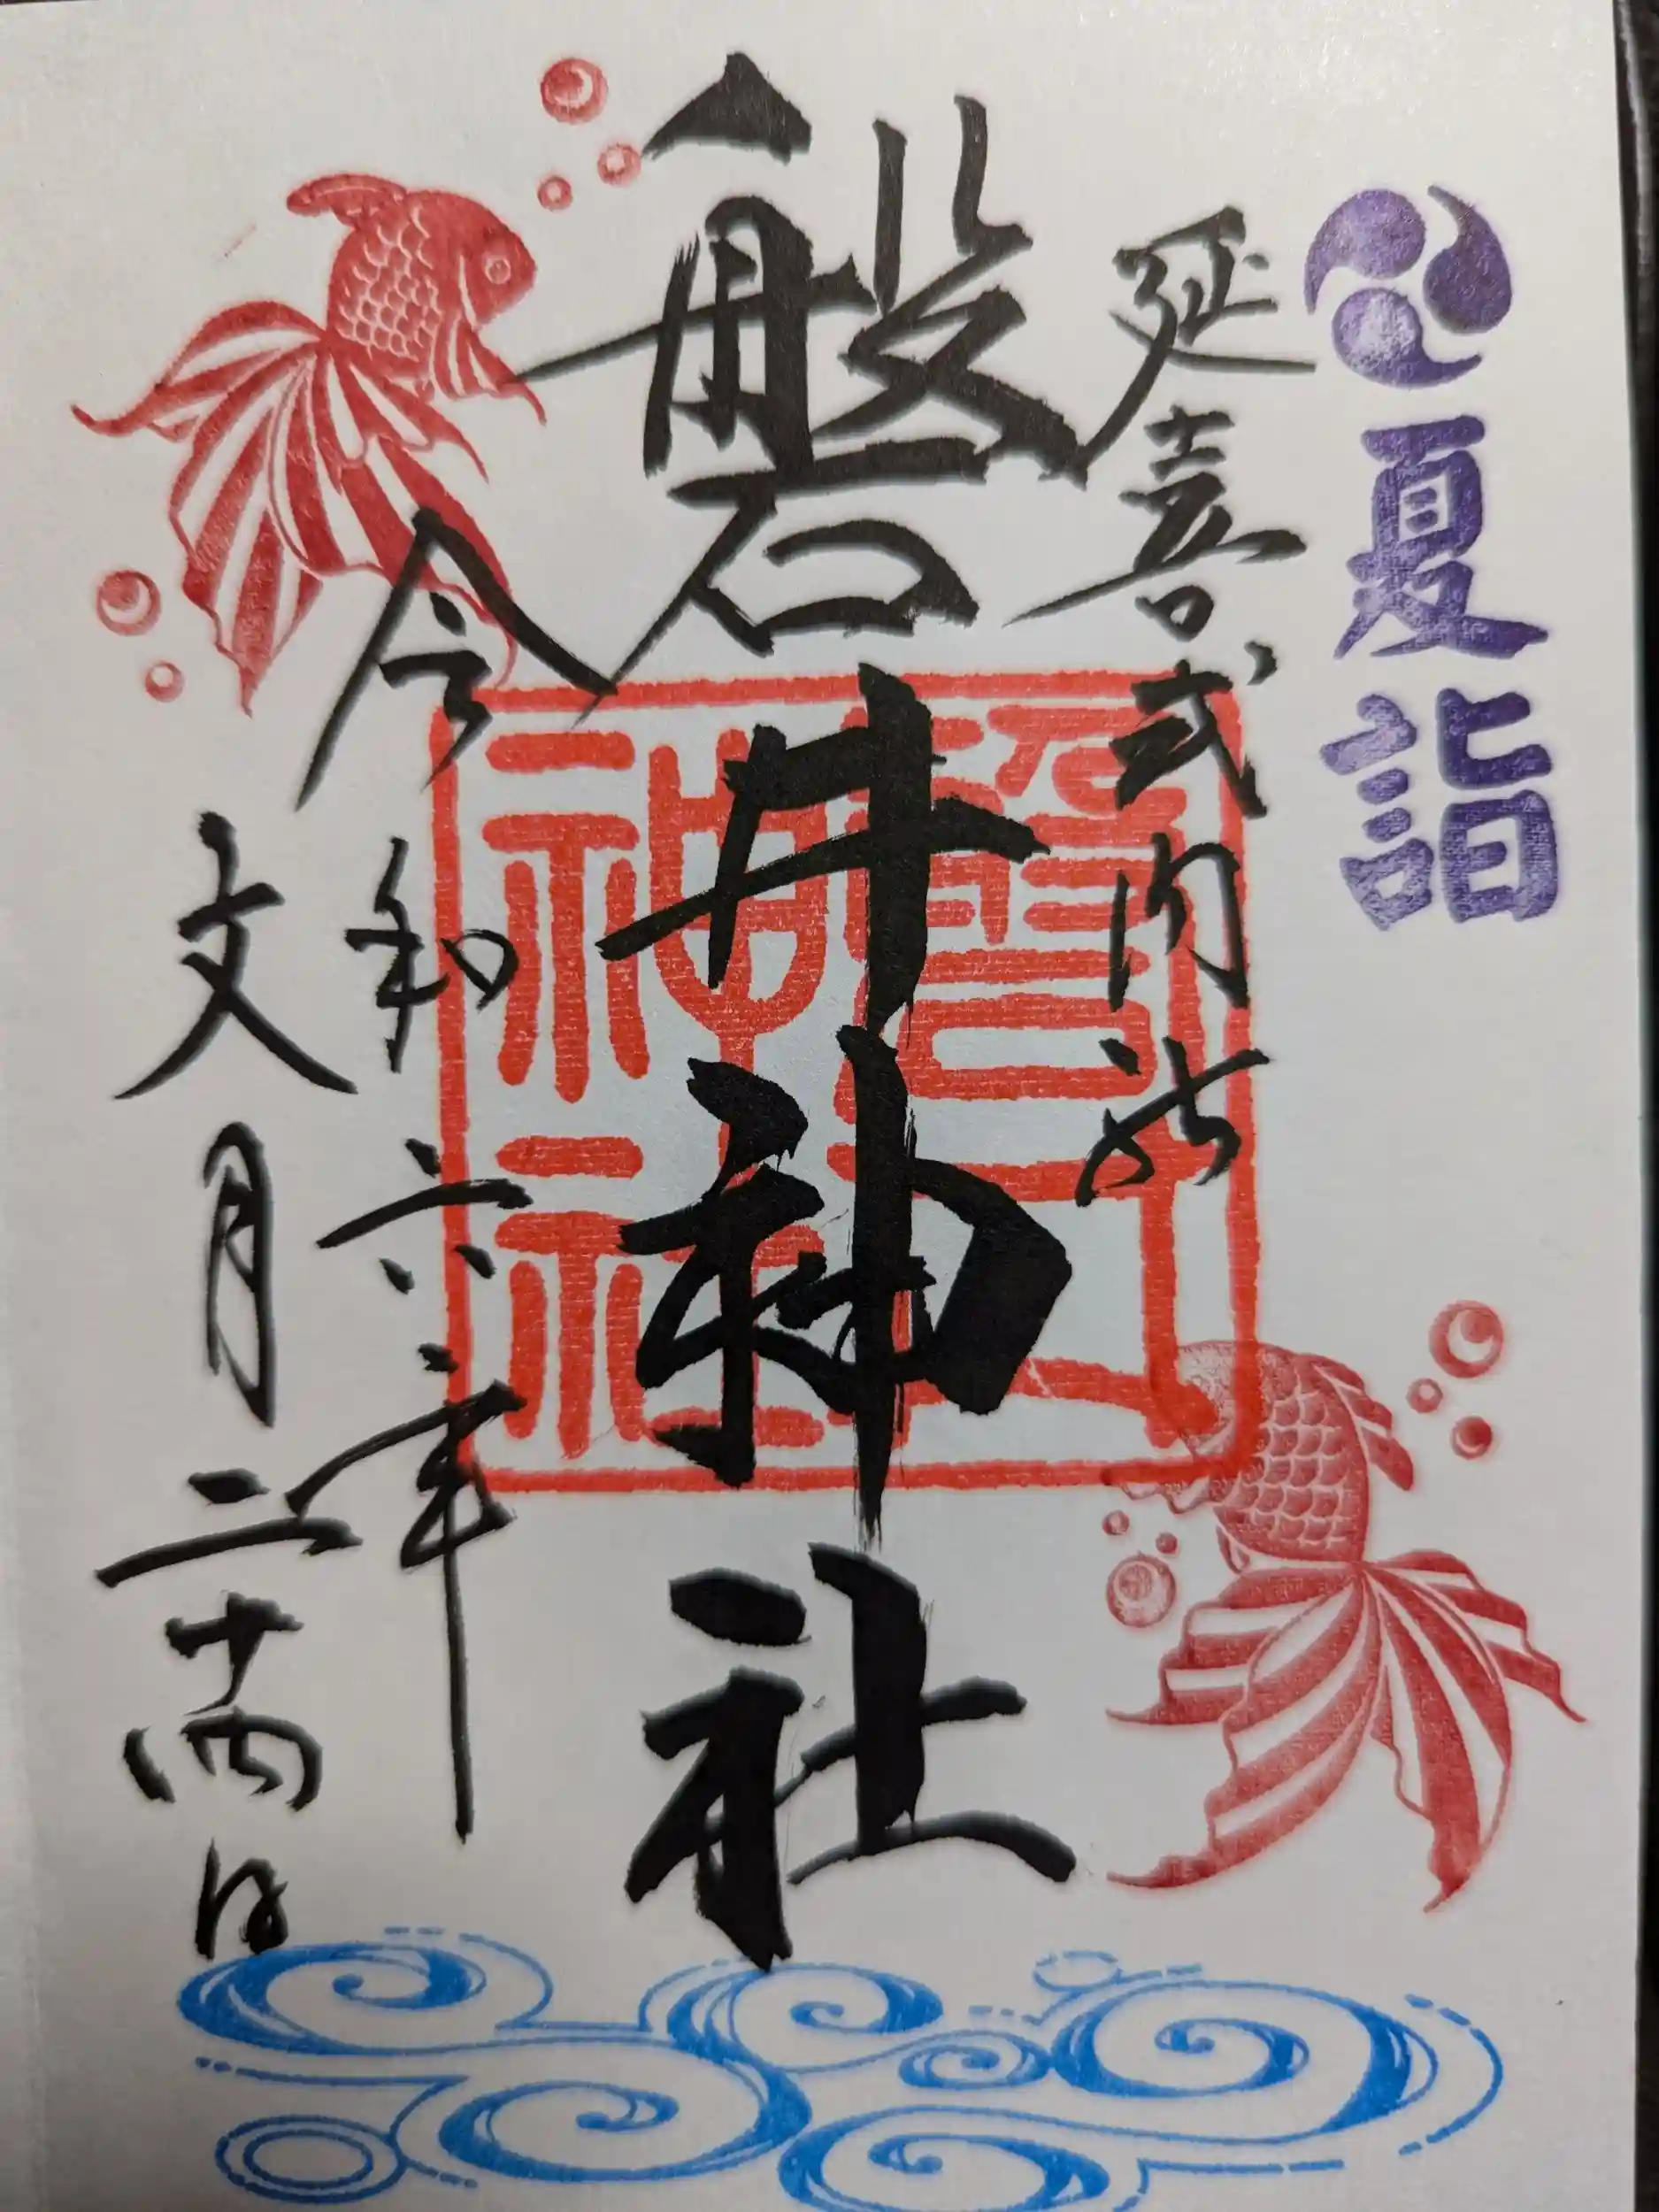 夏詣
延喜式内社
磐井神社
磐井神社
令和六年
文月二十四日